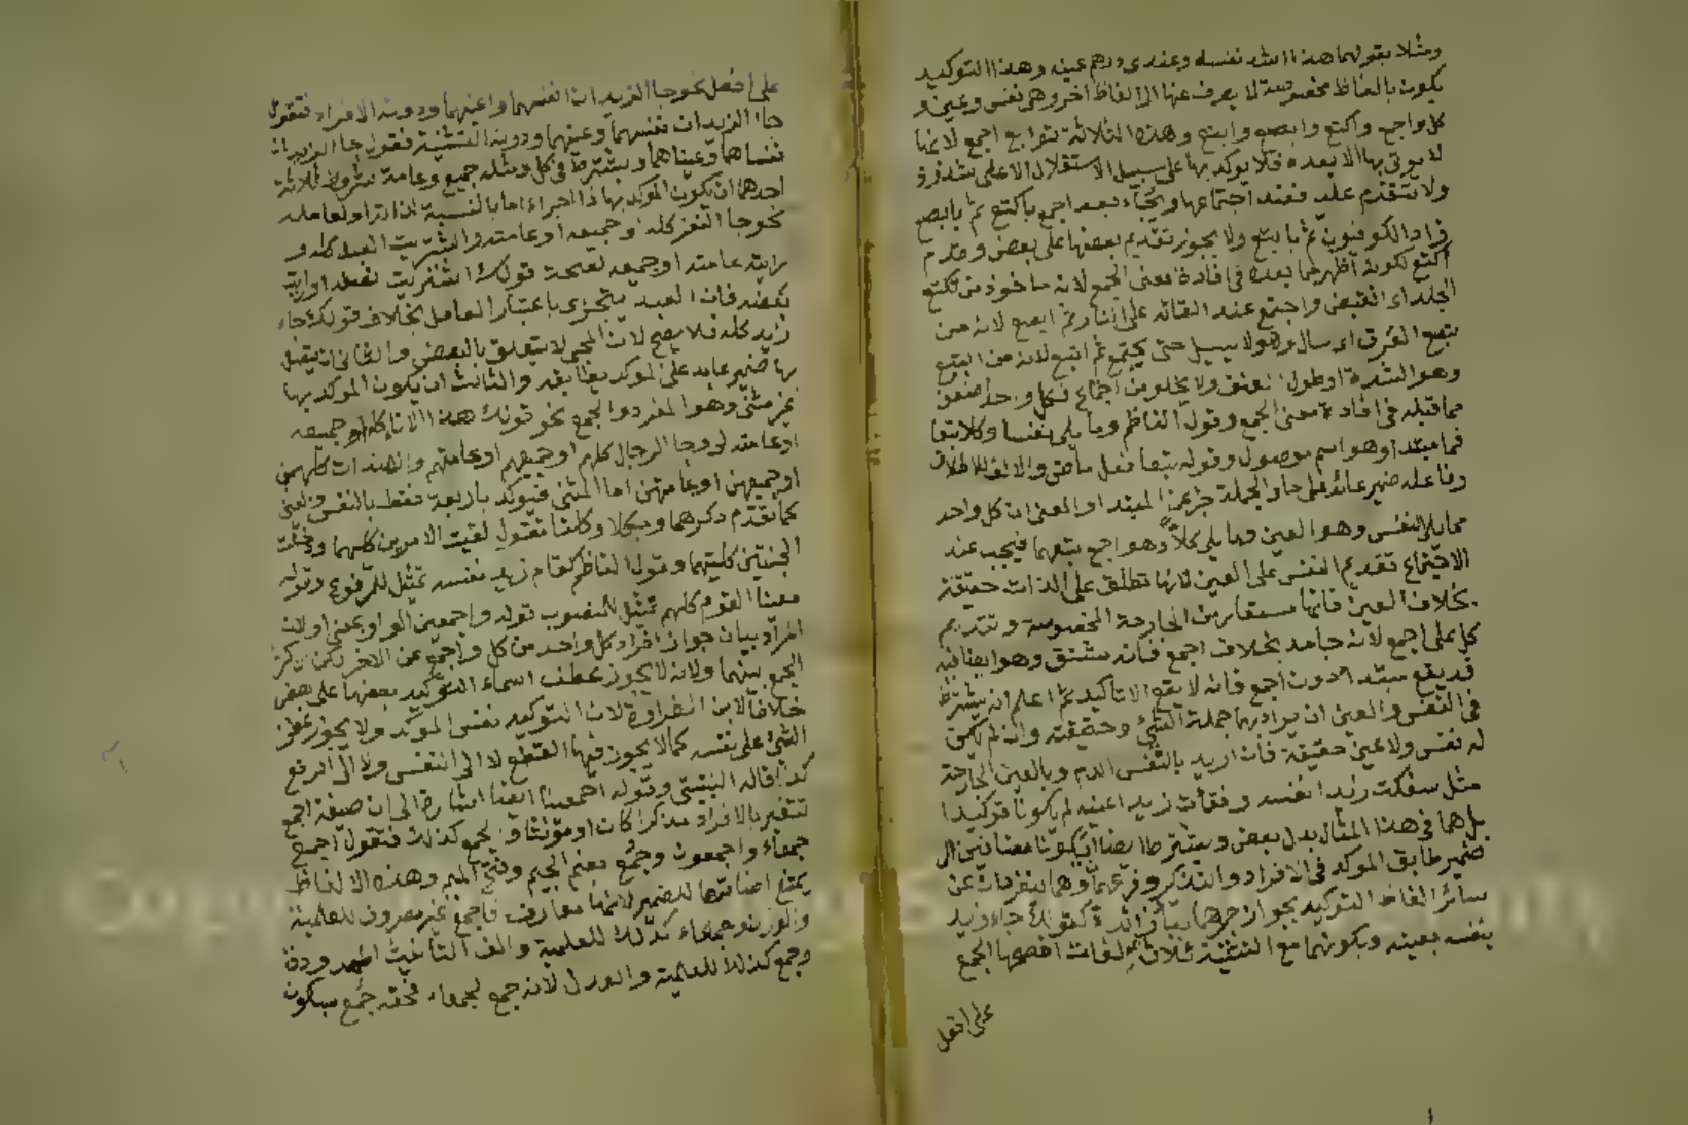 ومثلا بقولهما هذا اشد نفسه وعندي درهم عينه وهذا التوكيد
يكون بالفاظ مخصوصة لا يعرف عنها الى الفاظ اخر وهي نفس وعين و
كل واجمع واكتع وابصع وابتع وهذه الثلاثة توابع اجمع لانها
لا يوتى بها الا بعده فلا يوكد بها على سبيل الاستقلال الا على شذوذ
ولا تتقدم عليه فعند اجتماعها يجاء بعد اجمع باكتع ثم بابصع
زاد الكوفيون ثم بابتع ولا يجوز تقديم بعضها على بعض وقدم
اكتع لكونه اظهر مما بعده في افادة معنى الجمع لانه ماخوذ من تكتع
الجلد اي انقبض واجتمع عند القائه على النار ثم ابصع لانه من
بصع العرق اي سال وهو لا يسيل حتى يجتمع ثم ابتع لانه من البتع
وهو الشدة او طول العنق ولا يخلو من اجتماع فكل واحد اضعف
مما قبله في افادة معنى الجمع وقول الناظم وما يلي نفسا وكلا تبعا
فما مبتدا وهو اسم موصول وقوله تبعا فعل ماض والالف للاطلاق
وفاعله ضمير عائد على ما والجملة خبر عن المبتدا والمعنى ان كل واحد
مما يلي النفس وهو العين وما يلي كلاً وهو اجمع يتبعهما فيجب عند
الاجتماع تقديم النفس على العين لانها تطلق على الذات حقيقة
بخلاف العين فانها مستعارة من الجارحة المخصوصة وتقديم
كل على اجمع لانه جامد بخلاف اجمع فانه مشتق وهو ايضا فيه
قد يقع مبتدا دون اجمع فانه لا يقع الا تاكيدا ثم اعلم انه يشترط
في النفس والعين ان يراد بهما جملة الشيء وحقيقته وان لم يكن
له نفس ولا عين حقيقة فان اريد بالنفس الدم وبالعين الجارحة
مثل سفكت زيدا نفسه وفقأت زيدا عينه لم يكونا توكيدا
بل هما في هذا المثال بدل بعض ويشترط ايضا ان يكونا مضافين الى
ضمير طابق الموكد في الافراد والتذكير وفرعهما وهما ينفردان عن
سائر الفاظ التوكيد بجواز جرهما بباء زائدة كقولك جاء زيد
بنفسه بعينه وبكونهما مع التثنية ثلاث لغات افصحها الجمع
على افعل
على افعل نحو جا الزيدان انفسهما واعينهما ودونه الافراد فتقول
جاء الزيدان نفسهما وعينهما ودونه التثنية فتقول جا الزيدان
نفساهما وعيناهما ويشترط في كل ومثله جميع وعامة شروط ثلاثة
احدها ان يكون الموكد بها ذا اجزاء اما بالنسبة لذاته او لعامله
نحو جا النفر كله او جميعه او عامته واشتريت العبد كله و
رايته عامته او جميعه لصحة قولك اشتريت نصفه او رايت
بعضه فان العبد يتجزى باعتبار العامل بخلاف قولك جاء
زيد كله فلا يصح لان المجي لا يتعلق بالبعض والثاني ان يتصل
بها ضمير عايد على الموكد مطابقه والثالث ان يكون الموكد بها
غير مثنى وهو المفرد والجمع نحو قولك هذا الاناء كله او جميعه
او عامته لي وجا الرجال كلهم او جميعهم او عامتهم والهندات كلهن
او جميعهن او عامتهن اما المثنى فيوكد باربعة فقط بالنفس والعين
كما تقدم ذكرهما وبكلا وكلتا فتقول لقيت الاميرين كليهما ودخلت
الجنتين كلتيهما وقول الناظم كقام زيد نفسه تمثيل للمرفوع وقوله
معنا القوم كلهم تمثيل للمنصوب قوله واجمعين الواو بمعنى او لان
المراد بيان جواز افراد كل واحد من كل واجمع عن الاخر لكن ذكر
الجمع بينهما ولانه لا يجوز عطف اسماء التوكيد بعضها على بعض
خلافا لابن الطراوة لان التوكيد نفس الموكد ولا يجوز عطف
الشيء على نفسه كما لا يجوز فيها القطع لا الى النصب ولا الى الرفع
كذا قاله البنيتي وقوله اجمعينا ايضا اشارة الى ان صيغة اجمع
تتغير بالافراد مذكرا كان او مؤنثا والجمع كذلك فتقول اجمع
جمعاء واجمعون وجُمَع بضم الجيم وفتح الميم وهذه الالفاظ
يمتنع اضافتها للضمير لانها معارف فاجمع غير مصروف للعلمية
والوزن وجمعاء كذلك للعلمية والف التانيث الممدودة
وجمع كذلك للعلمية والعدل لانه جمع لجمعاء فحقه جُمْع بسكون